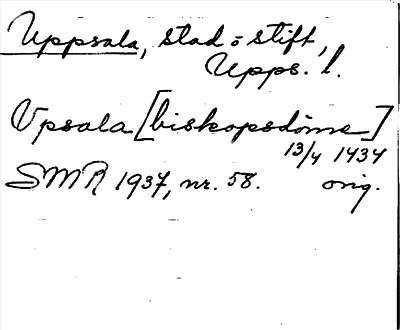 Uppsala, stad o stift,
Upps. l.
Vpsala [biskopsdöme]
13/4 1434
SMR 1937, nr. 58. orig.